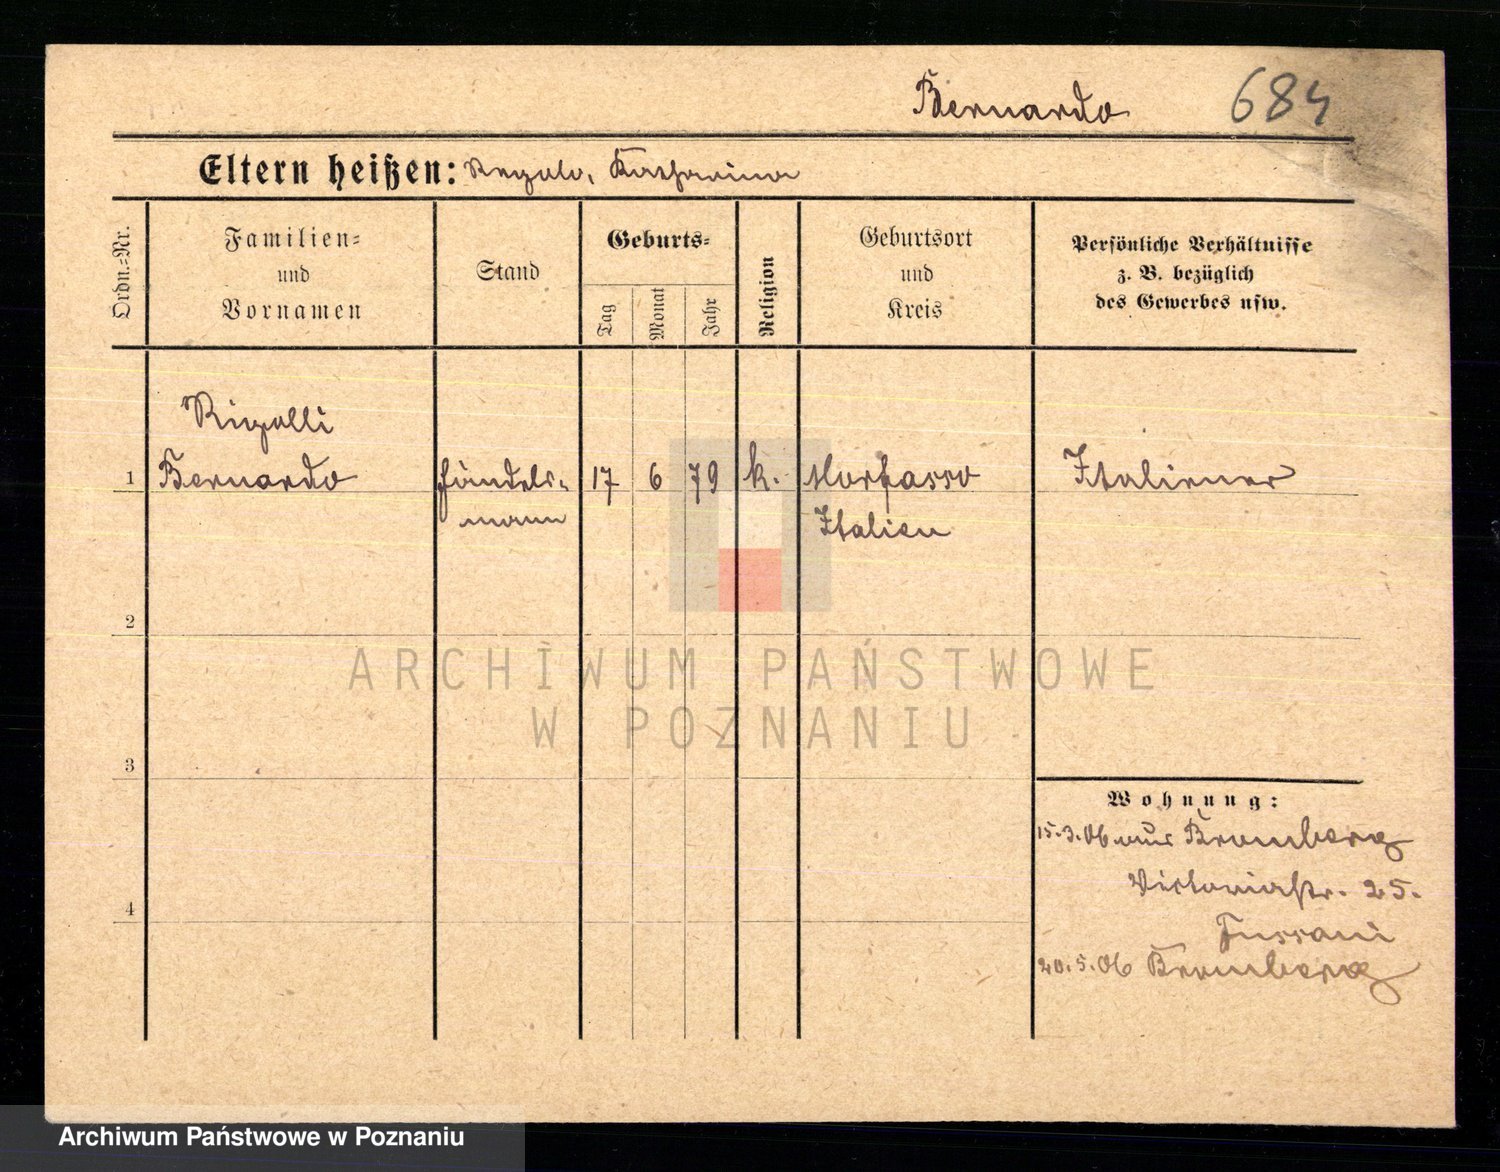 Bernardo 684
Eltern heißen: Katharina
Ordn.-Nr.
Familien-
und
Vornamen
Stand
Geburts-
Tag
Monat
Jahr
Religion
Geburtsort
und
Kreis
Persönliche Verhältnisse
z. B. bezüglich
des Gewerbes usw.
Rigolli
1 Bernardo Händels- 17 6 79 k. Morfasso Italiener
mann Italien
2
ARCHIWUM PAŃSTWOWE
W POZNANIU
3
Wohnung:
15.3.06 aus Bromberg
Victoriastr. 25.
Fussani
4
20.5.06 Bromberg
Archiwum Państwowe w Poznaniu